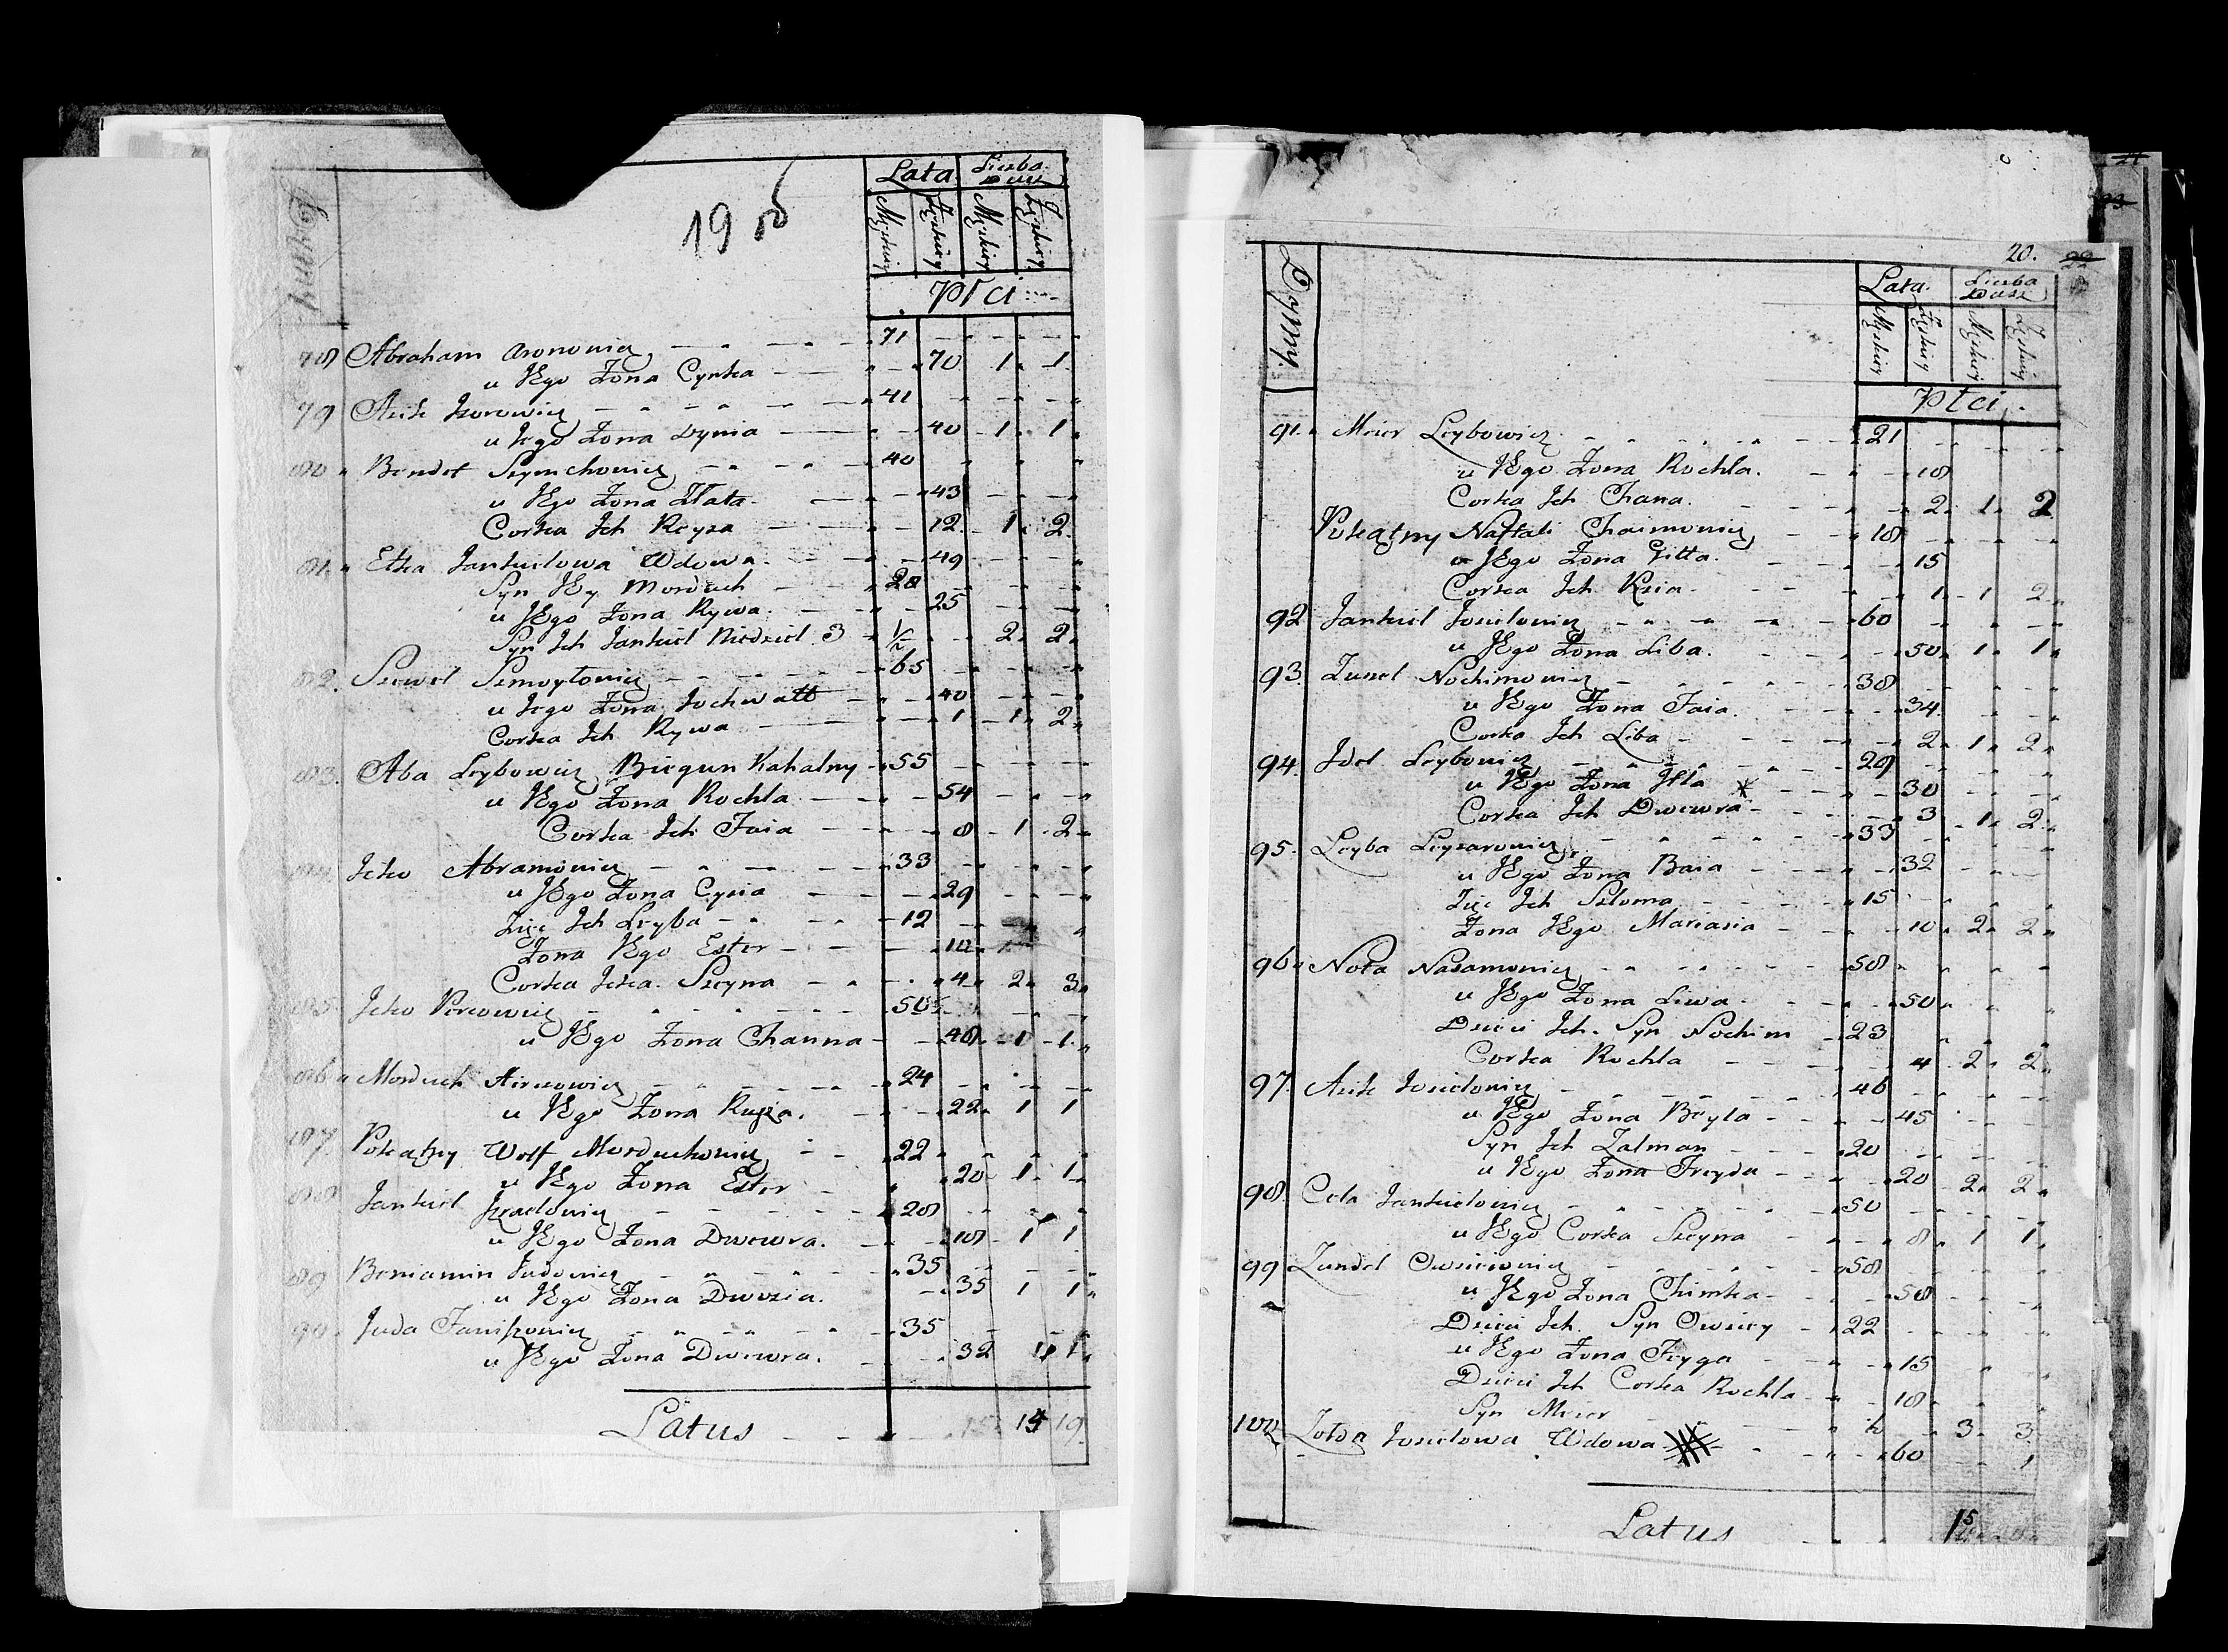 19 об
Dymy
Lata. Liczba Dusz
Męskiey Żeńskiey Męskiey Żeńskiey
Płci
78 Abraham Aronowicz 71
u Jego Żona Cynka 70 1 1
79 Aizik Izorowicz 41
u Jego Żona Dynia 40 1 1
80 Bendet Szymchowicz 40
u Jego Żona Złata 43
Corka Ich Reyza 12 1 2
81 Etka Jankielowa Wdowa 49
Syn Jey Morduch 28
u Jego Żona Rywa 25
Syn Ich Jankiel Niedziel 3 ½ 2 2
82. Szewel Szmoyłowicz 65
u Jego Żona Jochwatt 40
Corka Ich Rywa 1 1 2
83. Aba Leybowicz Biegun Kahalny 55
u Jego Żona Rochla 54
Corka Ich Faia 8 1 2
84. Icko Abramowicz 33
u Jego Żona Cysia 29
Zięć Ich Leyba 12
Żona Jego Ester 12
Corka Icka Szeyna 4 2 3
85 Icko Percowicz 50
u Jego Żona Channa 48 1 1
86 Morduch Airuowicz 24
u Jego Żona Ruyza. 22 1 1
87. Pokątny Wolf Morduchowicz 22
u Jego Żona Ester 20 1 1
88 Jankiel Izraelowicz 28
u Jego Żona Dwewra. 18 1 1
89 Beniamin Judowicz 35
u Jego Żona Dwozia. 35 1 1
90. Juda Faniszowicz 35
u Jego Żona Dwewra. 32 1 1
Latus 15 19
20. 22
Dymy.
Lata. Liczba Dusz
Męskiey Żeńskiey Męskiey Żeńskiey
Płci.
91. Meier Leybowicz 21
u Jego Żona Rochla. 18
Corka Ich Chana. 2 1 2
Pokątny Naftali Chaimowicz 18
u Jego Żona Gitta. 15
Corka Ich Ksia 1 1 2
92 Jankiel Josielowicz 60
u Jego Żona Liba. 50 1 1
93. Zunel Nochimowicz 38
u Jego Żona Faia. 34
Corka Ich Liba 2 1 2
94. Idel Leybowicz 29
u Jego Żona Itta * 30
Corka Ich Dwewra 3 1 2
95. Leyba Leyzarowicz 33
u Jego Żona Basia 32
Zięć Ich Szloma 15
Żona Jego Mariasia 10 2 2
96 Nota Nasamowicz 58
u Jego Żona Liwa 50
Dzieci Ich. Syn Nochim 23
Corka Rochla 4 2 2
97. Aizik Josielowicz 46
u Jego Żona Beyla 45
Syn Ich Zalman 20
u Jego Żona Freyda 20 2 2
98. Cela Jankielowicz 50
u Jego Corka Szeyna 8 1 1
99 Zundel Owsieiowicz 58
u Jego Żona Chimka 58
Dzieci Ich. Syn Owsiey 22
u Jego Żona Feyga 15
Dzieci Ich Corka Rochla 18
Syn Meier 3 3
100 Zołda Josielowa Wdowa 60 1
Latus 15